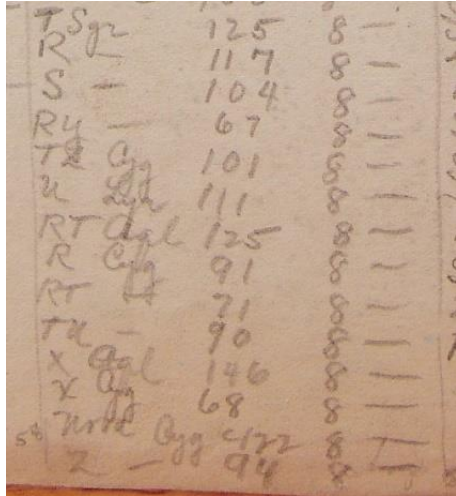 T Sgr 125 8 —
R — 117 8 —
S — 104 8 —
RU — 67 8 —
TZ Cyg 101 8 —
U Lyr 111 8 —
RT Aql 125 8 —
R Cyg 91 8 —
RT — 71 8 —
TU — 90 8 —
X Aql 146 8 —
X Cyg 68 8 —
Cyg <122 8 —
Z — 94 8 —